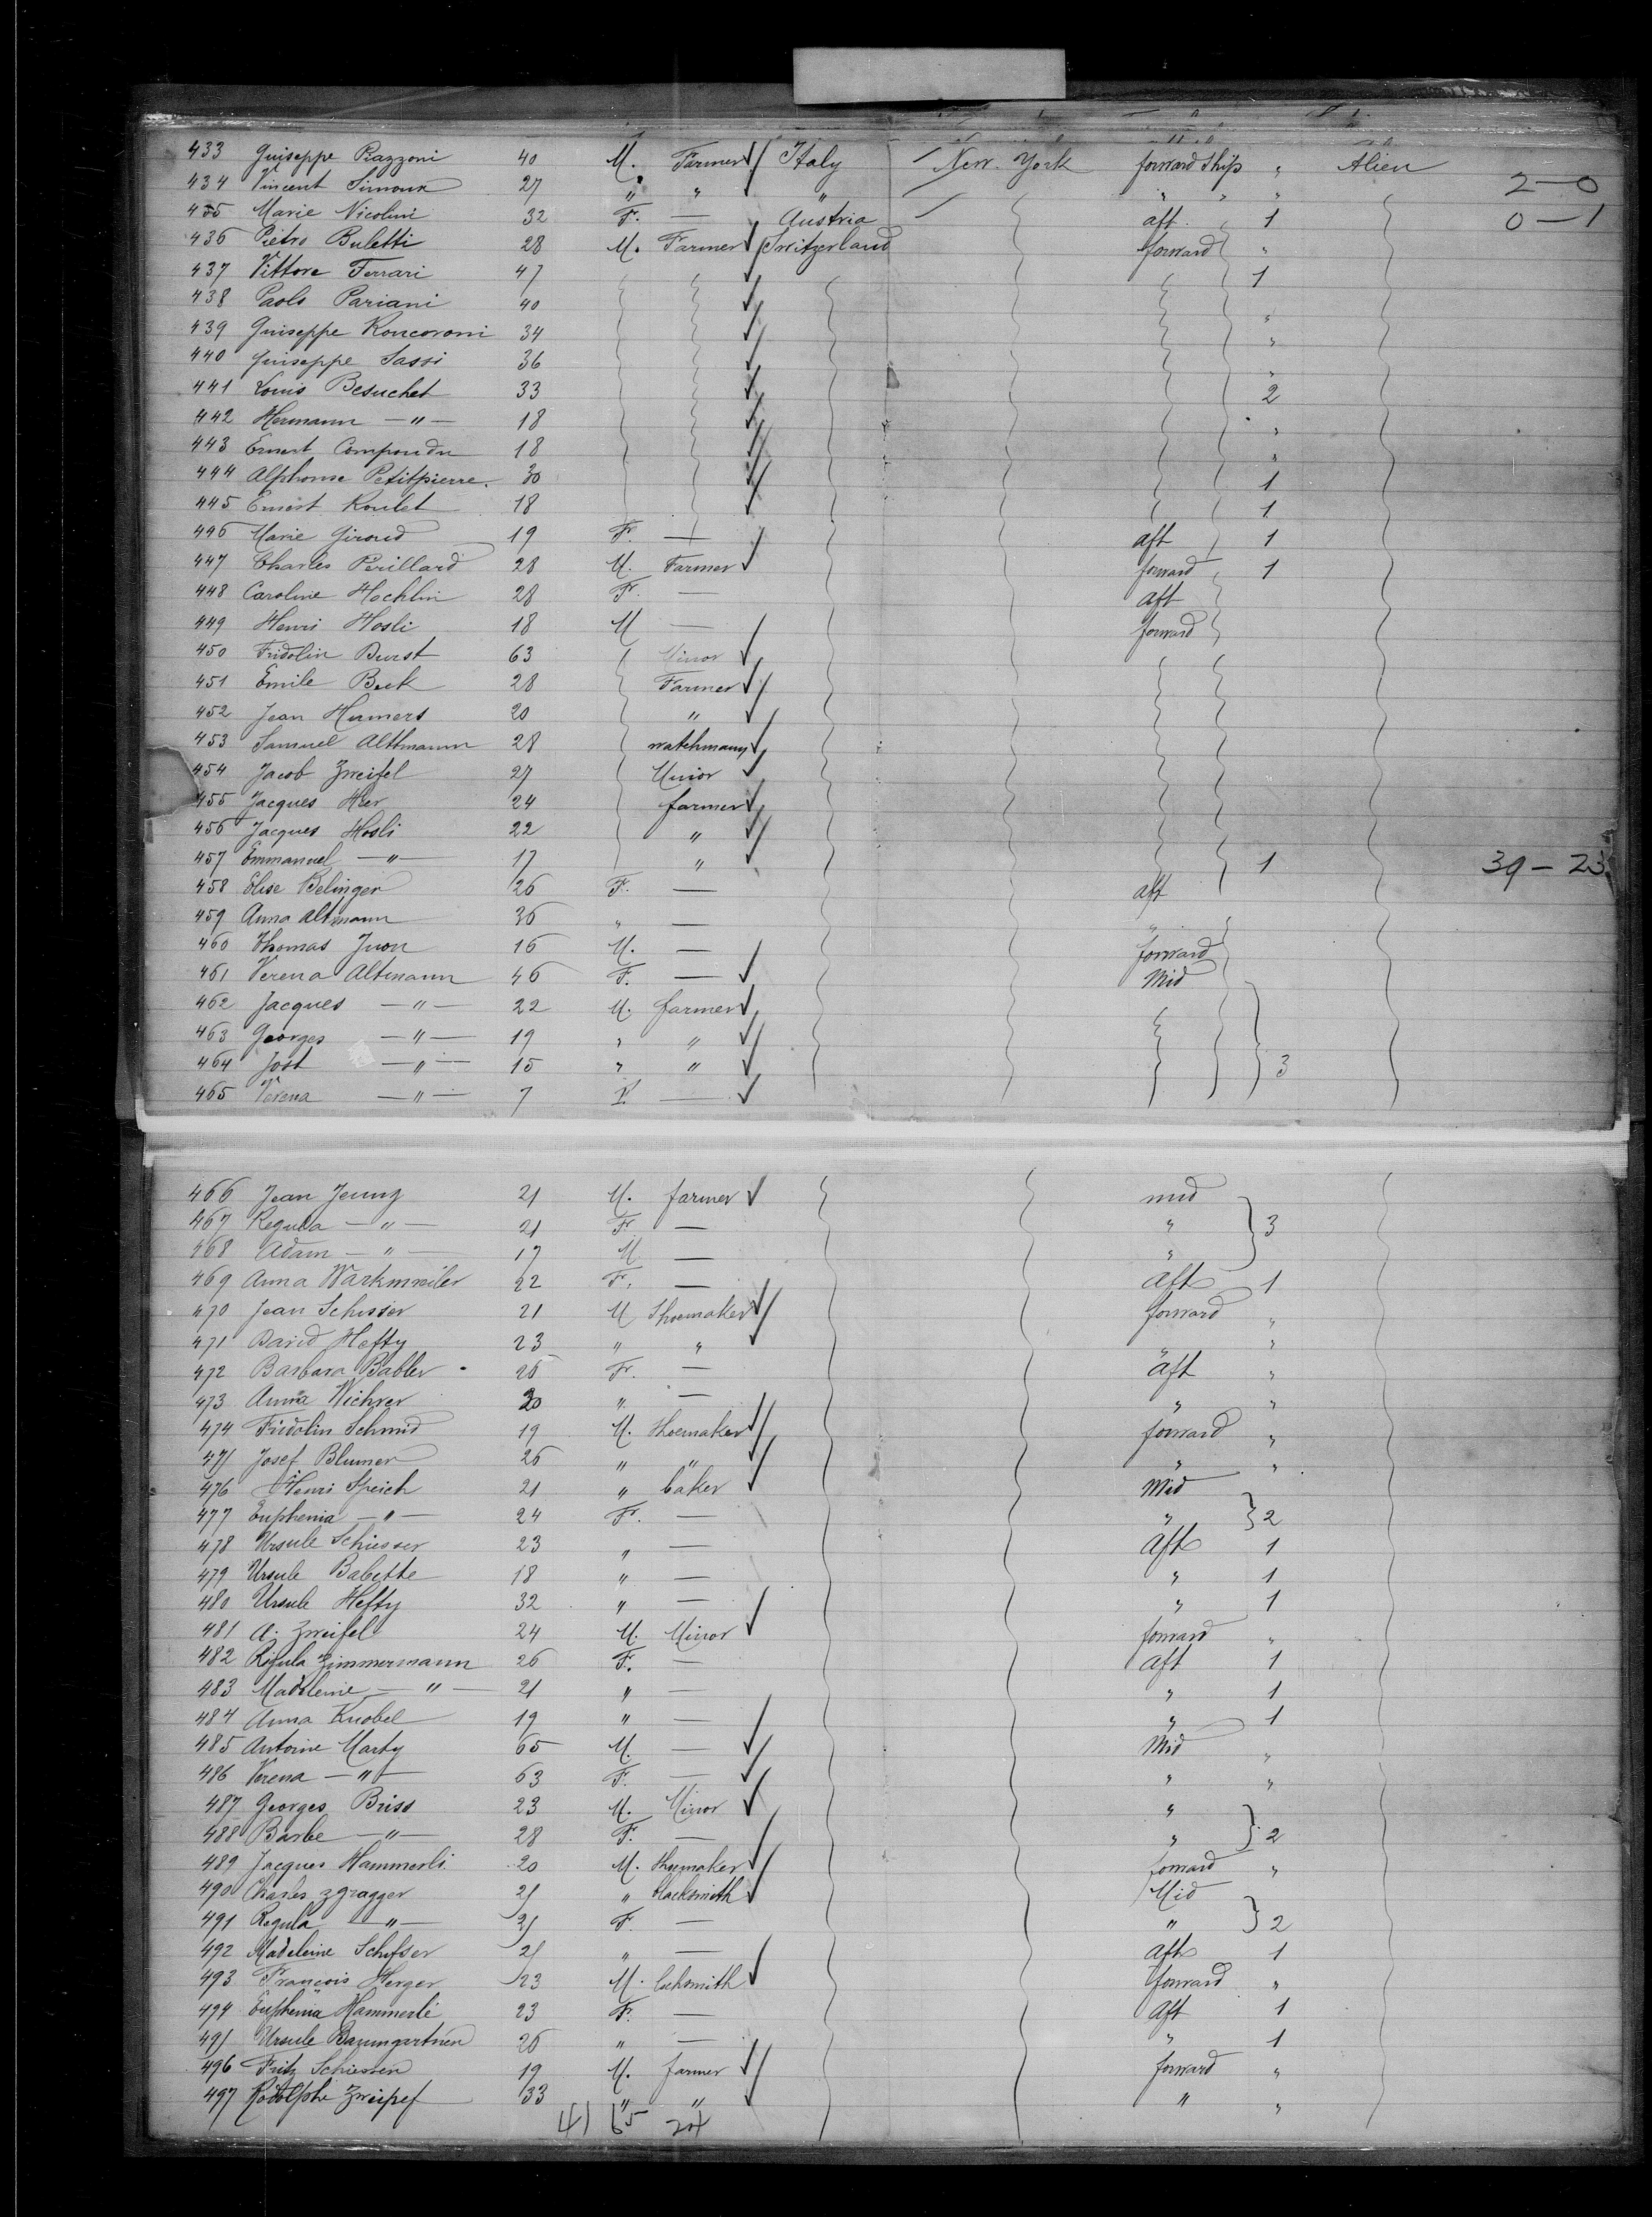 433 Guiseppe Piazzoni 40 M. Farmer Italy New York forward Ship " Alien 2-0
434 Vincent Simoux 27 " " " " " "
435 Marie Nicolini 32 F. — Austria aft 1 0-1
436 Pietro Buletti 28 M. Farmer Switzerland forward "
437 Vittore Ferrari 47 1
438 Paolo Pariani 40 "
439 Guiseppe Roncoroni 34 "
440 Guiseppe Sassi 36 "
441 Louis Besuchet 33 2
442 Hermann —"— 18 "
443 Ernest 18 "
444 Alphonse Petitpierre. 30 1
445 Ernest Roulet 18 1
446 Marie Giroud 19 F. — aft 1
447 Charles Perillard 28 M. Farmer forward 1
448 Caroline Hochlin 28 F. — aft
449 Henri Hosli 18 M — forward
450 Fridolin Durst 63 Minor
451 Emile Beck 28 Farmer
452 Jean 20 "
453 Samuel Altmann 28 watchmann
454 Jacob Zweifel 27 Minor
455 Jacques 24 farmer
456 Jacques Hosli 22 "
457 Emmanuel —"— 17 " 1 39-23
458 Elise Belinger 26 F. — aft
459 Anna Altmann 36 " — "
460 Thomas Juon 16 M. — forward
461 Verena Altmann 46 F. — Mid
462 Jacques —"— 22 M. farmer
463 Georges —"— 19 " "
464 Jost —"— 15 " " 3
465 Verena —"— 7 F. —
466 Jean Jenny 21 M. farmer mid
467 Regula —"— 21 F — " 3
468 Adam —"— 17 M — "
469 Anna 22 F. — Aft 1
470 Jean Schisser 21 M Shoemaker forward "
471 David Hefty 23 " " " "
472 Barbara Babler 26 F. — Aft "
473 Anna Wichser 20 " — " "
474 Fridolin Schmid 19 M. Shoemaker forward "
475 Josef Blumer 26 " " " "
476 Henri Speich 21 " baker Mid
477 Euphemia —"— 24 F. — " 2
478 Ursule Schiesser 23 " — Aft 1
479 Ursule Babette 18 " — " 1
480 Ursule Hefty 32 " — " 1
481 A. Zweifel 24 M. Minor forward "
482 Regula Zimmermann 26 F. — Aft 1
483 Madeleine —"— 21 " — " 1
484 Anna Knobel 19 " — " 1
485 Antoine Marty 65 M. — Mid "
486 Verena —"— 63 F. — " "
487 Georges Briss 23 M. Minor "
488 Barbe —"— 28 F. — " 2
489 Jacques Hammerli 20 M. Shoemaker forward "
490 Charles Zgragger 21 " blacksmith Mid
491 Regula —"— 21 F — " 2
492 Madeleine Schesser 21 " — aft 1
493 François Herger 23 M. locksmith forward "
494 Euphemia Hammerli 23 F. — Aft 1
495 Ursule Baumgartner 26 " — " 1
496 Fritz Schiesser 19 M. farmer forward "
497 Rodolphe Zweifel 33 " " " "
41 65 24